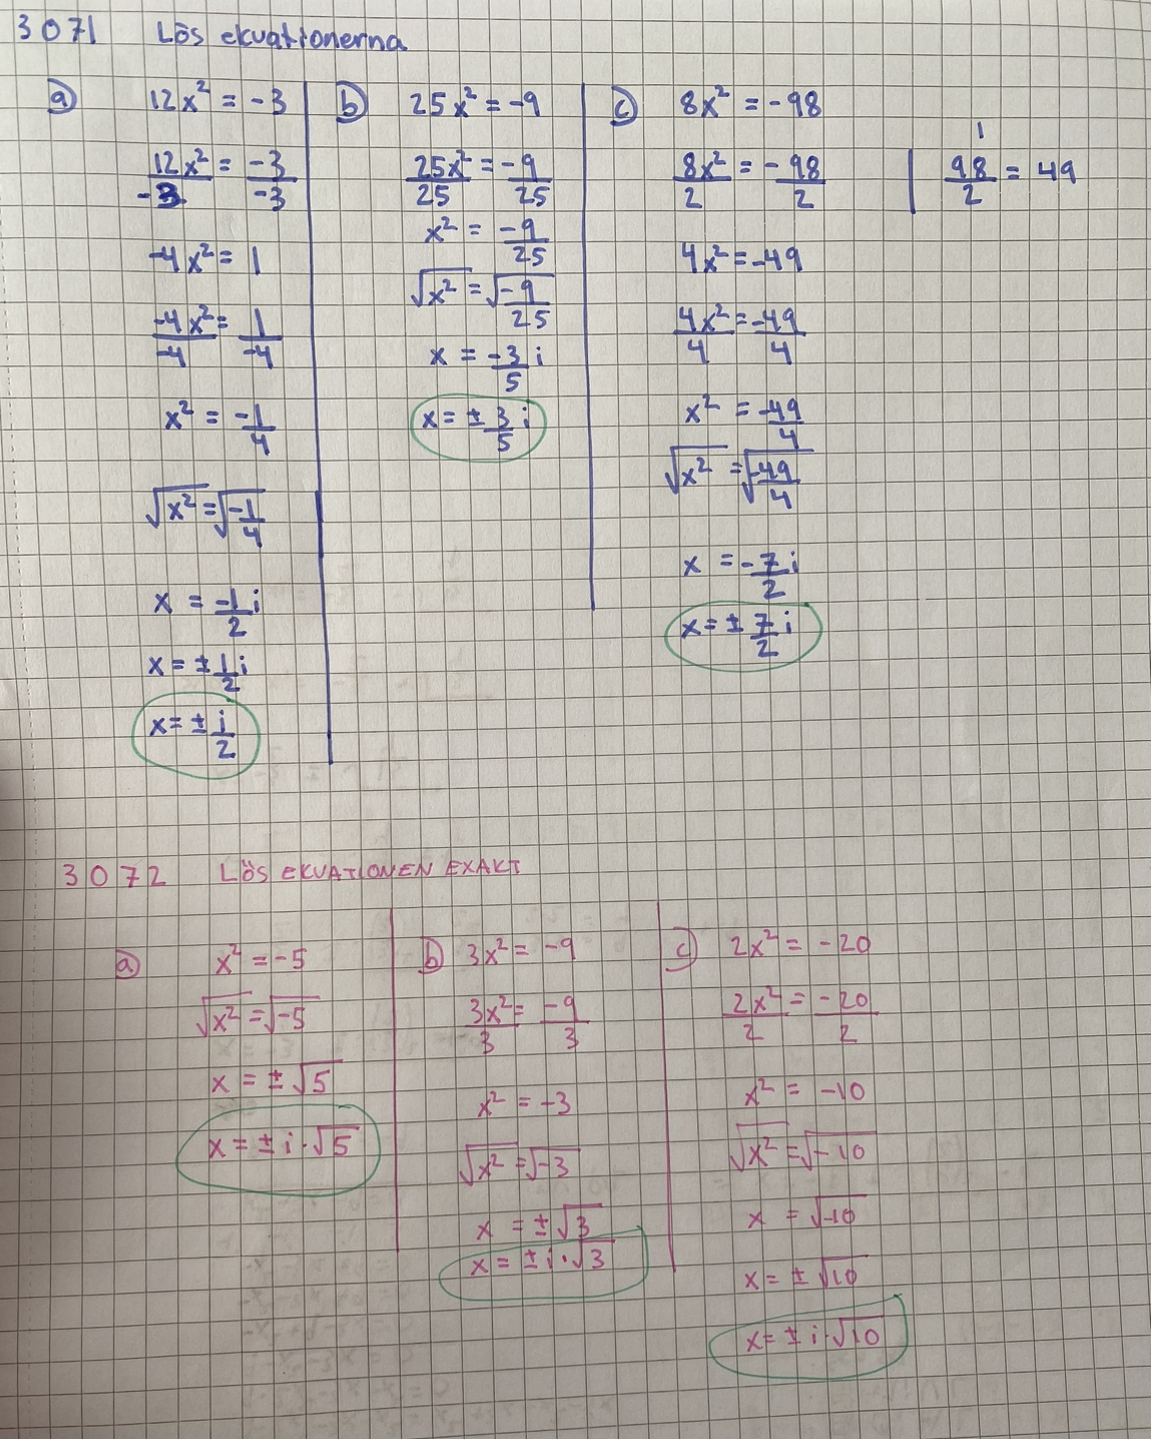 3071 Lös ekvationerna
a) 12x² = -3
12x²/-3 = -3/-3
-4x² = 1
-4x²/-4 = 1/-4
x² = -1/4
√x² = √-1/4
x = -1/2 i
x = ± 1/2 i
x = ± i/2
b) 25x² = -9
25x²/25 = -9/25
x² = -9/25
√x² = √-9/25
x = -3/5 i
x = ± 3/5 i
c) 8x² = -98
8x²/2 = -98/2 | 98/2 = 49
4x² = -49
4x²/4 = -49/4
x² = -49/4
√x² = √-49/4
x = -7/2 i
x = ± 7/2 i
3072 LÖS EKVATIONEN EXAKT
a) x² = -5
√x² = √-5
x = ± √5
x = ± i · √5
b) 3x² = -9
3x²/3 = -9/3
x² = -3
√x² = √-3
x = ± √3
x = ± i · √3
c) 2x² = -20
2x²/2 = -20/2
x² = -10
√x² = √-10
x = √-10
x = ± √10
x = ± i · √10